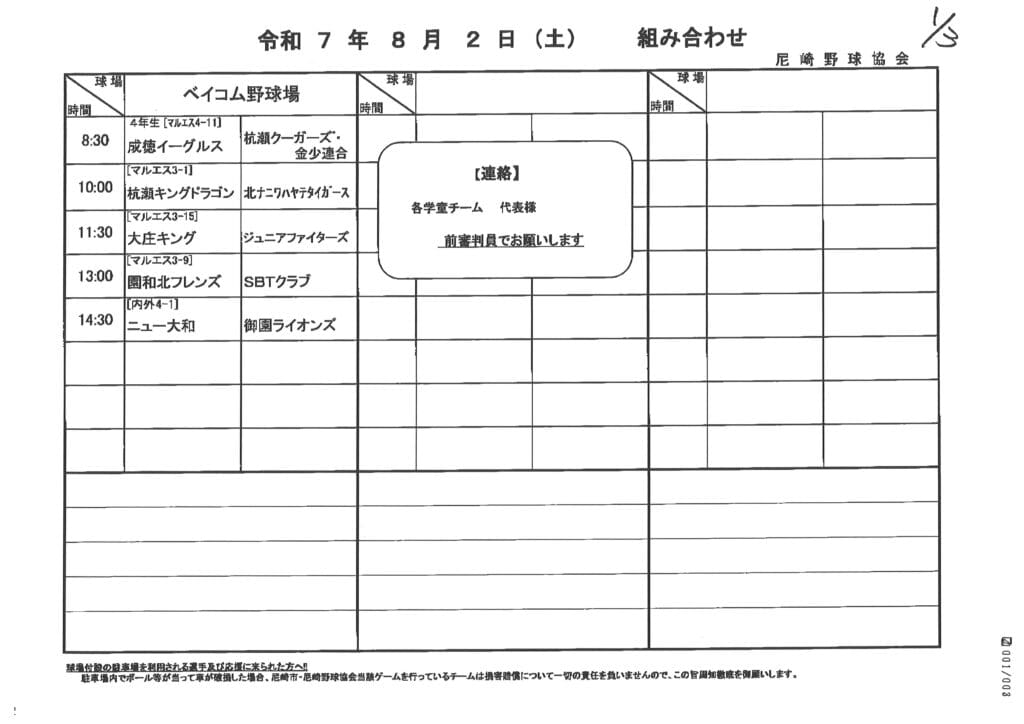 令和 7 年 8 月 2 日 (土) 組み合わせ
1/3
尼崎野球協会
球場
時間
ベイコム野球場
球場
時間
球場
時間
8:30
4年生 [マルエス4-11]
成徳イーグルス
杭瀬クーガーズ・
金少連合
10:00
[マルエス3-1]
杭瀬キングドラゴン
北ナニワハヤテタイガース
11:30
[マルエス3-15]
大庄キング
ジュニアファイターズ
13:00
[マルエス3-9]
園和北フレンズ
SBTクラブ
14:30
[内外4-1]
ニュー大和
御園ライオンズ
【連絡】
各学童チーム 代表様
前審判員でお願いします
球場付設の駐車場を利用される選手及び応援に来られた方へ!!
駐車場内でボール等が当って車が破損した場合、尼崎市・尼崎野球協会当該ゲームを行っているチームは損害賠償について一切の責任を負いませんので、この旨周知徹底を御願いします。
001/003